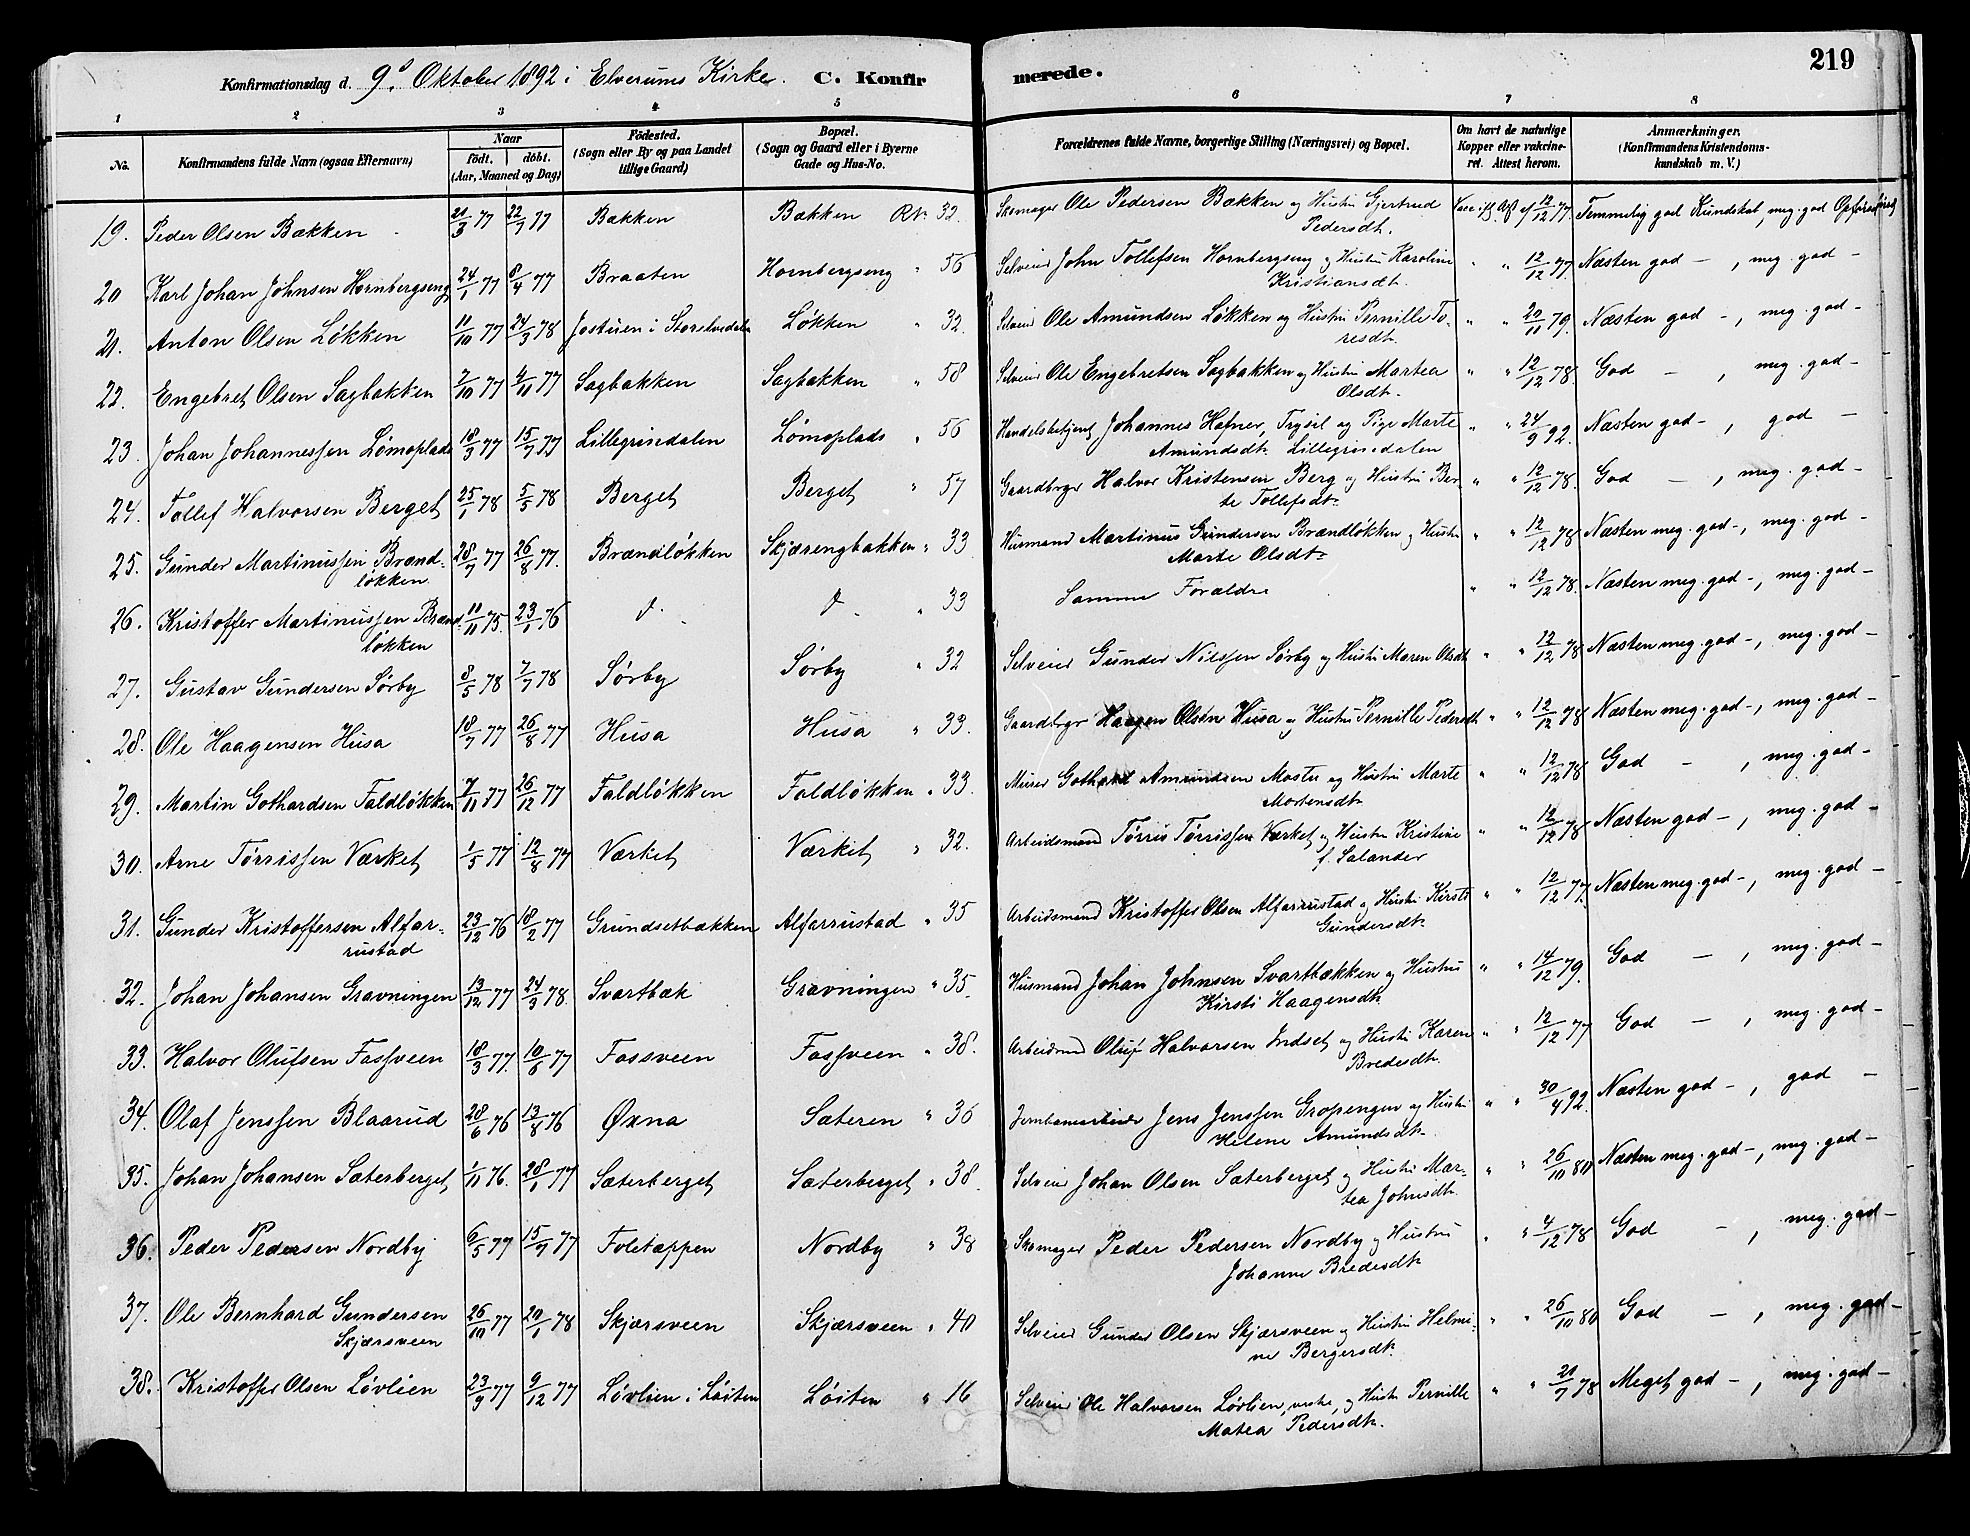 219
Konfirmationsdag d. 9de Oktober 1892 i Elverums Kirke. C. Konfirmerede.
1 2 3 4 5 6 7 8
No. Konfirmandens fulde Navn (ogsaa Efternavn) Naar født. døbt. (Aar, Maaned og Dag) Födested. (Sogn eller By og paa Landet tillige Gaard) Bopæl. (Sogn og Gaard eller i Byerne Gade og Hus-No. Forældrenes fulde Navne, borgerlige Stilling (Næringsvei) og Bopæl. Om havt de naturlige Kopper eller vakcineret. Attest herom. Anmærkninger. (Konfirmandens Kristendomskundskab m. V.)
19. Peder Olsen Bakken 21/3 77 22/7 77 Bakken Bakken RN 32. Skomager Ole Pedersen Bakken og Hustru Gjertrud
Pedersdtr. 12/12 77. Temmelig god Kundskab, meg. god Opførsel
20 Karl Johan Johnsen Hornbergseng 24/1 77 8/4 77 Braaten Hornbergseng " 56 Selveier John Tollefsen Hornbergseng og Hustru Karoline
Kristiansdtr. " " 12/12 77. Næsten god – , meg. god –
21. Anton Olsen Løkken 11/10 77 24/3 78 Jostuen i Storelvedalen Løkken " 32. Selveier Ole Amundsen Løkken og Hustru Pernille To-
resdtr. " " 20/11 79. Næsten god – , meg. god –
22. Engebret Olsen Sagbakken 7/10 77 4/11 77 Sagbakken Sagbakken " 58 Selveier Ole Engebretsen Sagbakken og Hustru Martea
Olsdtr. " " 12/12 78. God – , meg. god –
23. Johan Johannessen Lømoplads 18/3 77 15/7 77 Lillegrisedalen Lømoplads " 56 Handelsbetjent Johannes Hafner, Trysil og Pige Marte
Amundsdtr. Lillegrisedalen " " 24/9 92. Næsten god – , god –
24. Tollef Halvorsen Berget 25/1 78 5/5 78 Berget Berget " 57 Gaardbrgr Halvor Kristensen Berg og Hustru Ber-
te Tollefsdtr. " " 12/12 78. God – , meg. god –
25. Gunder Martinussen Brænd-
løkken 28/7 77 26/8 77. Brændløkken Skjærengbakken " 33 Husmand Martinus Gundersen Brændløkken og Hustru
Marte Olsdtr. " " 12/12 78 Næsten meg. god –, meg. god –
26. Kristoffer Martinussen Brænd-
løkken 11/11 75. 23/1 76 d. d. " 33 Samme Forældre " " 12/12 78. Næsten meg. god –, meg. god –
27. Gustav Gundersen Sørby 8/5 78 7/7 78 Sørby Sørby " 32 Selveier Gunder Nilssen Sørby og Hustru Maren Olsdtr. " " 12/12 78 Næsten meg. god –, meg. god –
28. Ole Haagensen Husa 18/7 77 26/8 77 Husa Husa " 33. Gaardbrgr Haagen Olsen Husa og Hustru Pernille Pedersdtr " " 12/12 78 Næsten meg. god –, meg. god –
29. Martin Gothardsen Faldløkken 7/11 77 26/12 77 Faldløkken Faldløkken " 33. Murer Gothard Amundsen Mostu og Hustru Marte
Mortensdtr. " " 12/12 78 God – , meg. god –
30. Arne Tørrissen Værket 1/5 77 12/8 77 Værket Værket " 32. Arbeidsmand Tørris Tørrissen Værket og Hustru Kristine
f. Salander " " 12/12 78 Næsten god – , meg. god –
31. Gunder Kristoffersen Alfar-
rustad 23/12 76 18/2 77 Grundsetbakken Alfarrustad " 35 Arbeidsmand Kristoffer Olsen Alfarrustad og Hustru Kirsti
Gundersdtr. " " 12/12 77. Næsten meg. god –, meg. god –
32. Johan Johansen Gravningen 13/12 77 24/3 78. Svartbæk Gravningen " 35. Husmand Johan Johnsen Svartbækken og Hustru
Kirsti Haagensdtr. " " 14/12 79. God – , meg. god –
33. Halvor Olufsen Fossveen 18/3 77. 10/6 77 Fossveen Fossveen " 38. Arbeidsmd Oluf Halvorsen Indset og Hustru Karen
Bredesdtr. " " 12/12 77 God – , meg. god –
34. Olaf Jenssen Blaarud 28/6 76 13/8 76 Øxna Sæteren " 36 Jernbanearbeider Jens Jenssen Gropengen og Hustru
Helene Amundsdtr. " " 30/4 92. Næsten god – , god –
35. Johan Johansen Sæterberget 1/11 76. 28/1 77 Sæterberget Sæterberget " 38. Selveier Johan Olsen Sæterberget og Hustru Mar-
tea Johnsdtr. " " 26/10 80 Næsten meg. god –, meg. god –
36. Peder Pedersen Nordby 6/5 77 15/7 77 Foletappen Nordby " 38 Skomager Peder Pedersen Nordby og Hustru
Johanne Bredesdtr. " " 4/12 78 God – , meg. god –
37. Ole Bernhard Gundersen
Skjærsveen 26/10 77 20/1 78 Skjærsveen Skjærsveen " 40 Selveier Gunder Olsen Skjærsveen og Hustru Helmi-
ne Bergersdtr. " " 26/10 80 God – , meg. god –
38. Kristoffer Olsen Løvlien 23/9 77 9/12 77 Løvlien i Løiten Løiten " 16 Selveier Ole Halvorsen Løvlien, vestre, og Hustru Pernille
Matea Pedersdtr. " " 21/7 78 Meget god – , meg. god –